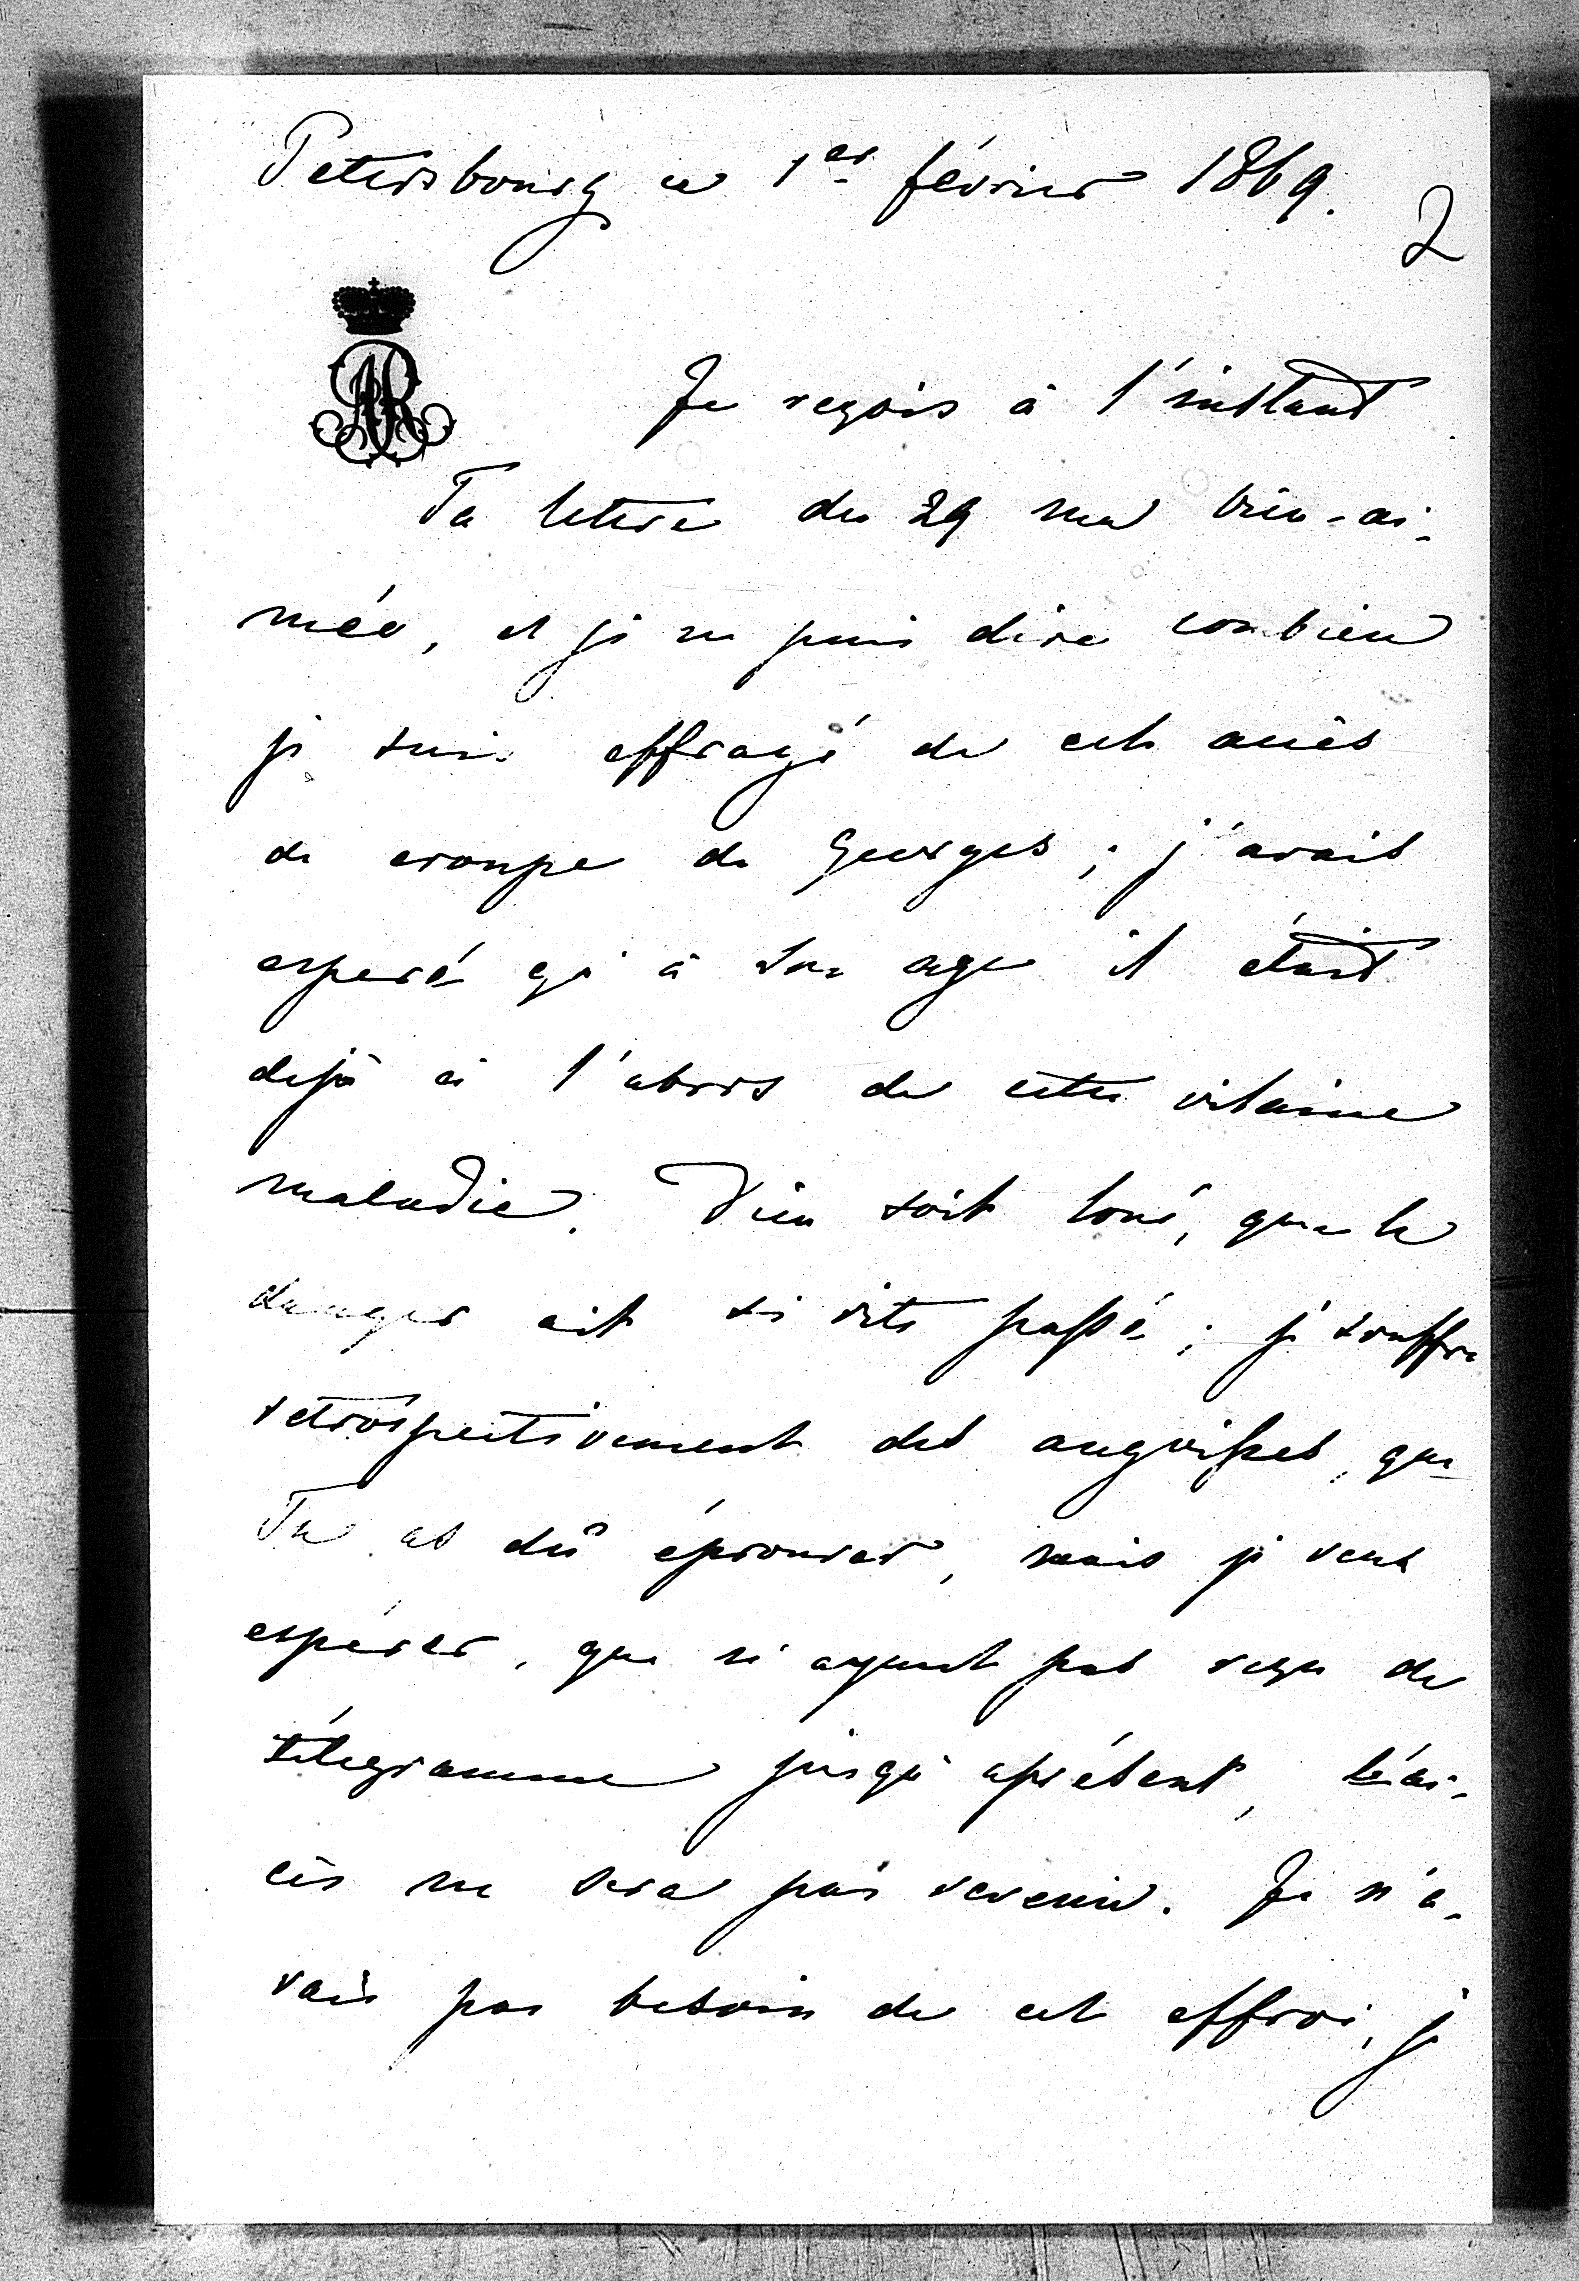 Petersbourg ce 1er février 1869.
2
AR
Je reçois à l'instant
Ta lettre du 29 ma bien-ai-
mée, et je ne puis dire combien
je suis effrayé de cet accès
de croupe de Georges ; j'avais
esperé qu'à son age il était
dejà à l'abris de cette vilaine
maladie. Dieu soit loué, que le
danger ait si vite passé ; je souffre
retrospectivement des angoisses, que
Tu as dû éprouver, mais je veux
espérer, que n'ayant pas reçu de
télégramme jusqu'aprésent, l'ac-
cès ne sera pas revenu. Je n'a-
vais pas besoin de cet effroi, je